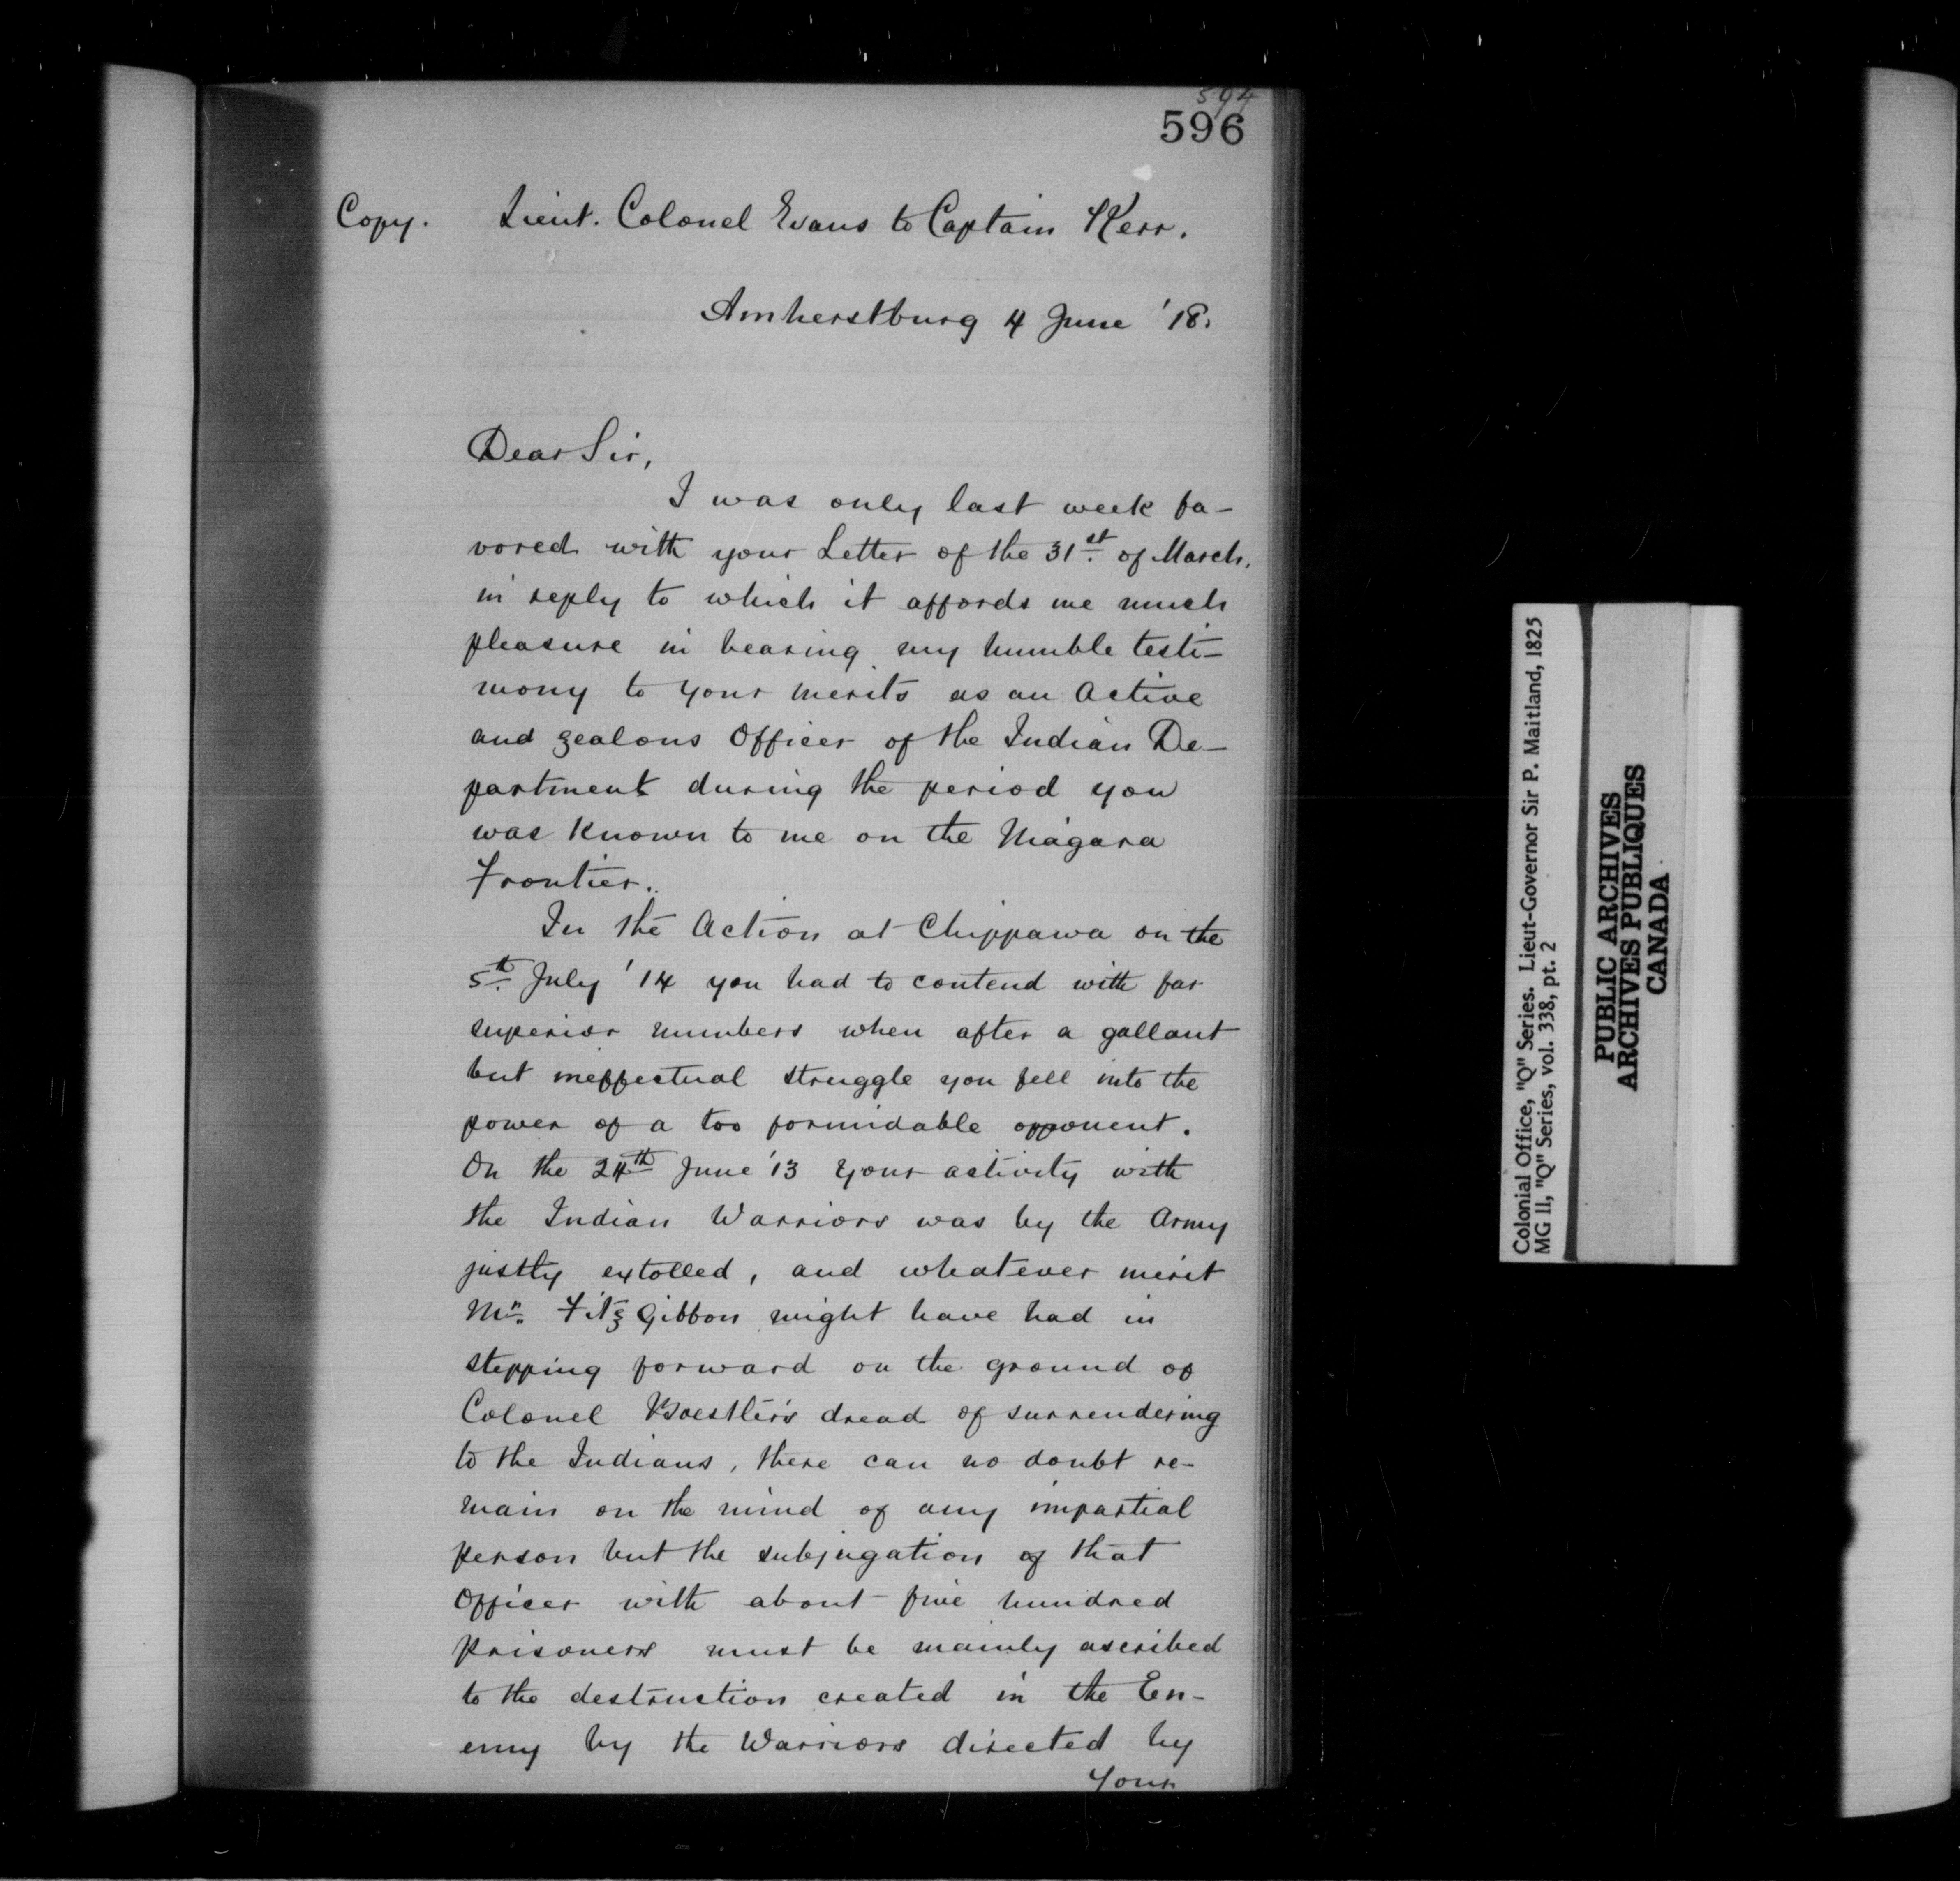 594
596
Copy. Lieut. Colonel Evans to Captain Kerr.
Amherstburg 4 June '18.
Dear Sir,
I was only last week fa-
vored with your Letter of the 31st. of March,
in reply to which it affords me much
pleasure in bearing my humble testi-
mony to your merits as an active
and zealous Officer of the Indian De-
partment during the period you
was known to me on the Niagara
Frontier.
In the Action at Chippawa on the
5th. July '14 you had to contend with far
superior numbers when after a gallant
but ineffectual struggle you fell into the
power of a too formidable opponent.
On the 24th June '13 your activity with
the Indian Warriors was by the Army
justly extolled, and whatever merit
Mr. Fitz Gibbon might have had in
stepping forward on the ground of
Colonel Boestler's dread of surrendering
to the Indians, there can no doubt re-
main on the mind of any impartial
person but the subjugation of that
Officer with about five hundred
prisoners must be mainly ascribed
to the destruction created in the En-
emy by the Warriors directed by
Your
Colonial Office, "Q" Series. Lieut-Governor Sir P. Maitland, 1825
MG 11, "Q" Series, vol. 338, pt. 2
PUBLIC ARCHIVES
ARCHIVES PUBLIQUES
CANADA